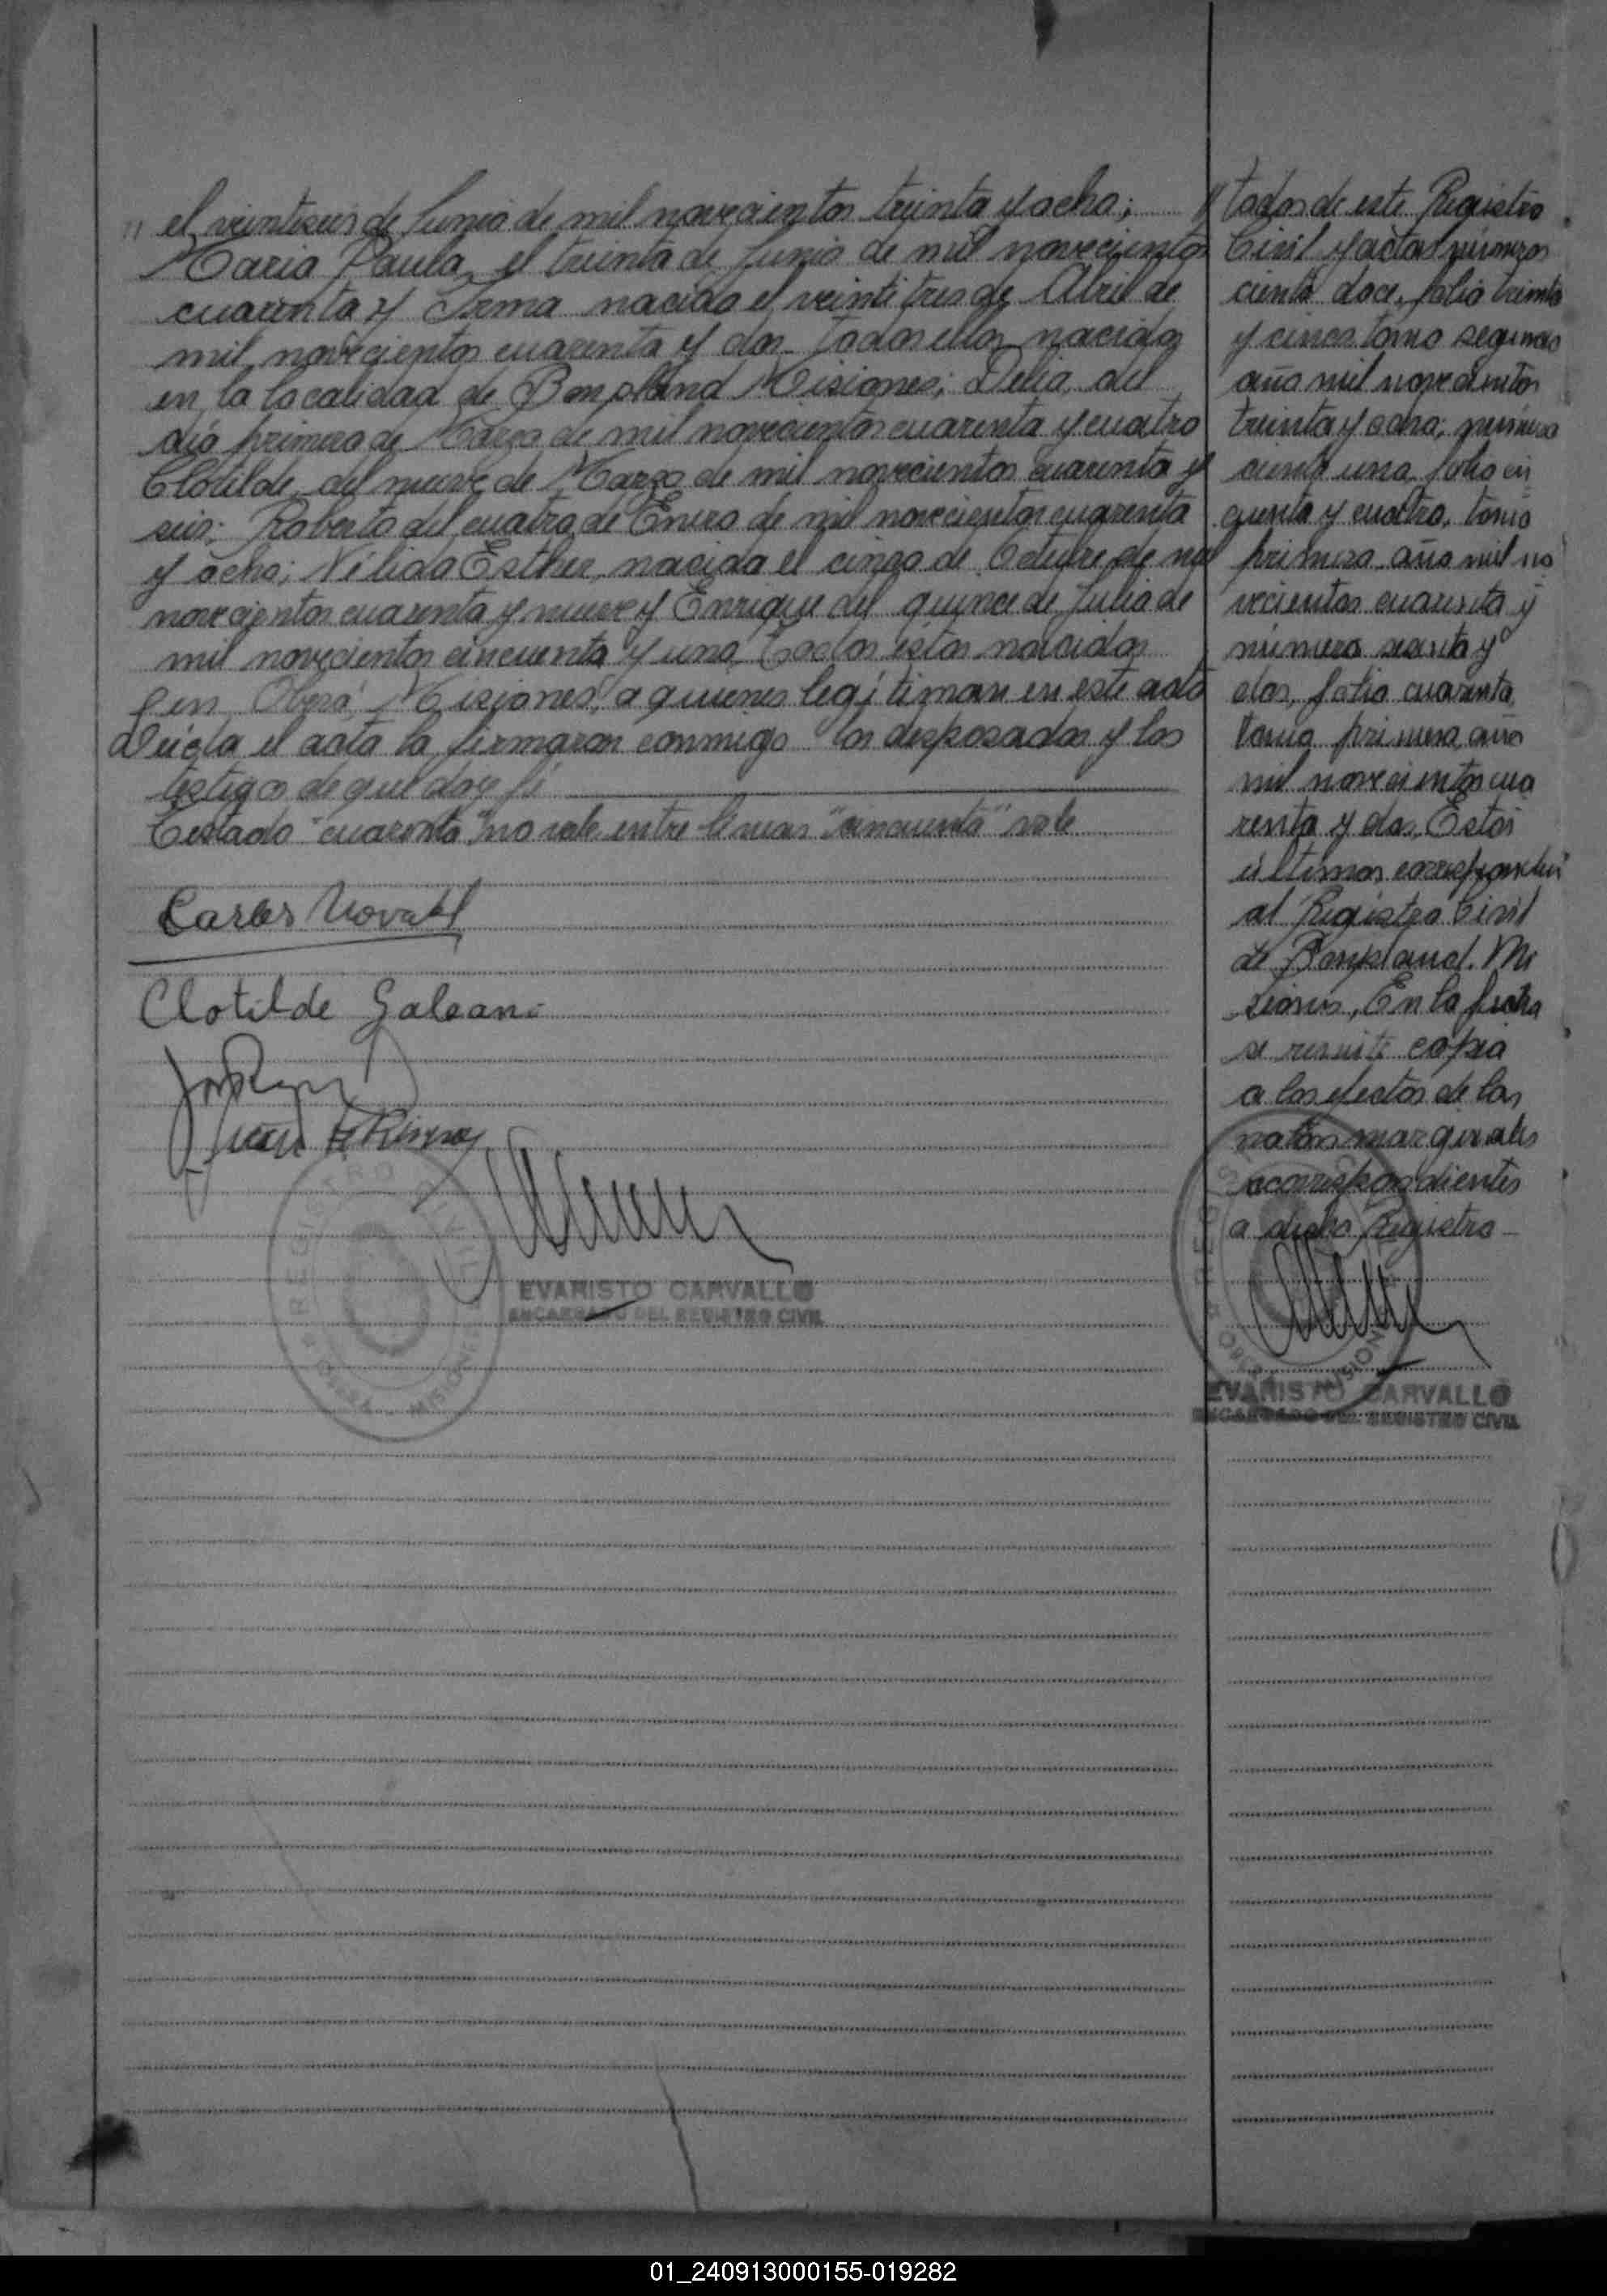 " el veintiseis de Junio de mil novecientos treinta y ocho;
Maria Paula, el treinta de Junio de mil novecientos
cuarenta y Irma nacida el veintitres de Abril de
mil novecientos cuarenta y dos todos ellos nacidos
en la localidad de Bonpland Misiones; Delia del
día primero de Marzo de mil novecientos cuarenta y cuatro
Clotilde, del nueve de Marzo de mil novecientos cuarenta y
seis; Roberto del cuatro de Enero de mil novecientos cuarenta
y ocho; Nélida Esther, nacida el cinco de Octubre de mil
novecientos cuarenta y nueve y Enrique del quince de Julio de
mil novecientos cincuenta y uno, todos estos nacidos
en Oberá Misiones, a quienes legitiman en este acto
Leída el acta la firmaron conmigo los desposados y los
testigos de que doy fé
Testado "cuarenta" no vale entre lineas "cincuenta" vale
Carlos Novakl
Clotilde Galeano
EVARISTO CARVALLO
ENCARGADO DEL REGISTRO CIVIL
REGISTRO CIVIL
OBERA - MISIONES
" tados de este Registro
Civil y actas números
ciento doce, folio treinta
y cinco tomo segundo
año mil novecientos
treinta y ocho; número
ciento uno, folio cin
cuenta y cuatro, tomo
primero, año mil no
vecientos cuarenta y
número sesenta y
dos, folio cuarenta,
tomo primero, año
mil novecientos cua
renta y dos. Estos
últimos corresponden
al Registro Civil
de Bonpland. Mi
siones, En la fecha
se remite copia
a los efectos de las
notas marginales
correspondientes
a dicho Registro -
EVARISTO CARVALLO
ENCARGADO DEL REGISTRO CIVIL
01_240913000155-019282